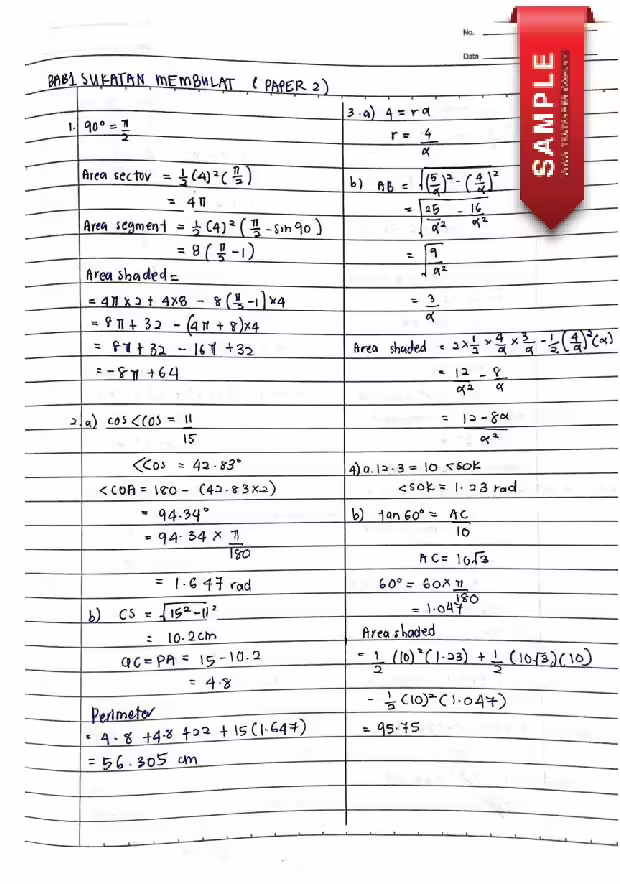 No.
Date
SAMPLE
BAB1 SUKATAN MEMBULAT ( PAPER 2 )
1. 90° = π/2
Area sector = 1/2 (4)² (π/2)
= 4π
Area segment = 1/2 (4)² (π/2 - sin 90)
= 8 (π/2 - 1)
Area shaded =
= 4π x 2 + 4x8 - 8 (π/2 - 1) x 4
= 8π + 32 - (4π + 8) x 4
= 8π + 32 - 16π + 32
= -8π + 64
2. a) cos < COS = 11/15
< COS = 42.83°
< COA = 180 - (42.83 x 2)
= 94.34°
= 94.34 x π/180
= 1.647 rad
b) CS = √15² - 11²
= 10.2 cm
QC = PA = 15 - 10.2
= 4.8
Perimeter
= 4.8 + 4.8 + 22 + 15 (1.647)
= 56.305 cm
3. a) 4 = rα
r = 4/α
b) AB = √(5/α)² - (4/α)²
= √25/α² - 16/α²
= √9/α²
= 3/α
Area shaded = 2 x 1/2 x 4/α x 3/α - 1/2 (4/α)² (α)
= 12/α² - 8/α
= 12 - 8α/α²
4) a. 12.3 = 10 < SOK
< SOK = 1.23 rad
b) tan 60° = AC/10
AC = 10√3
60° = 60 x π/180
= 1.047
Area shaded
= 1/2 (10)² (1.23) + 1/2 (10√3) (10)
- 1/2 (10)² (1.047)
= 95.75